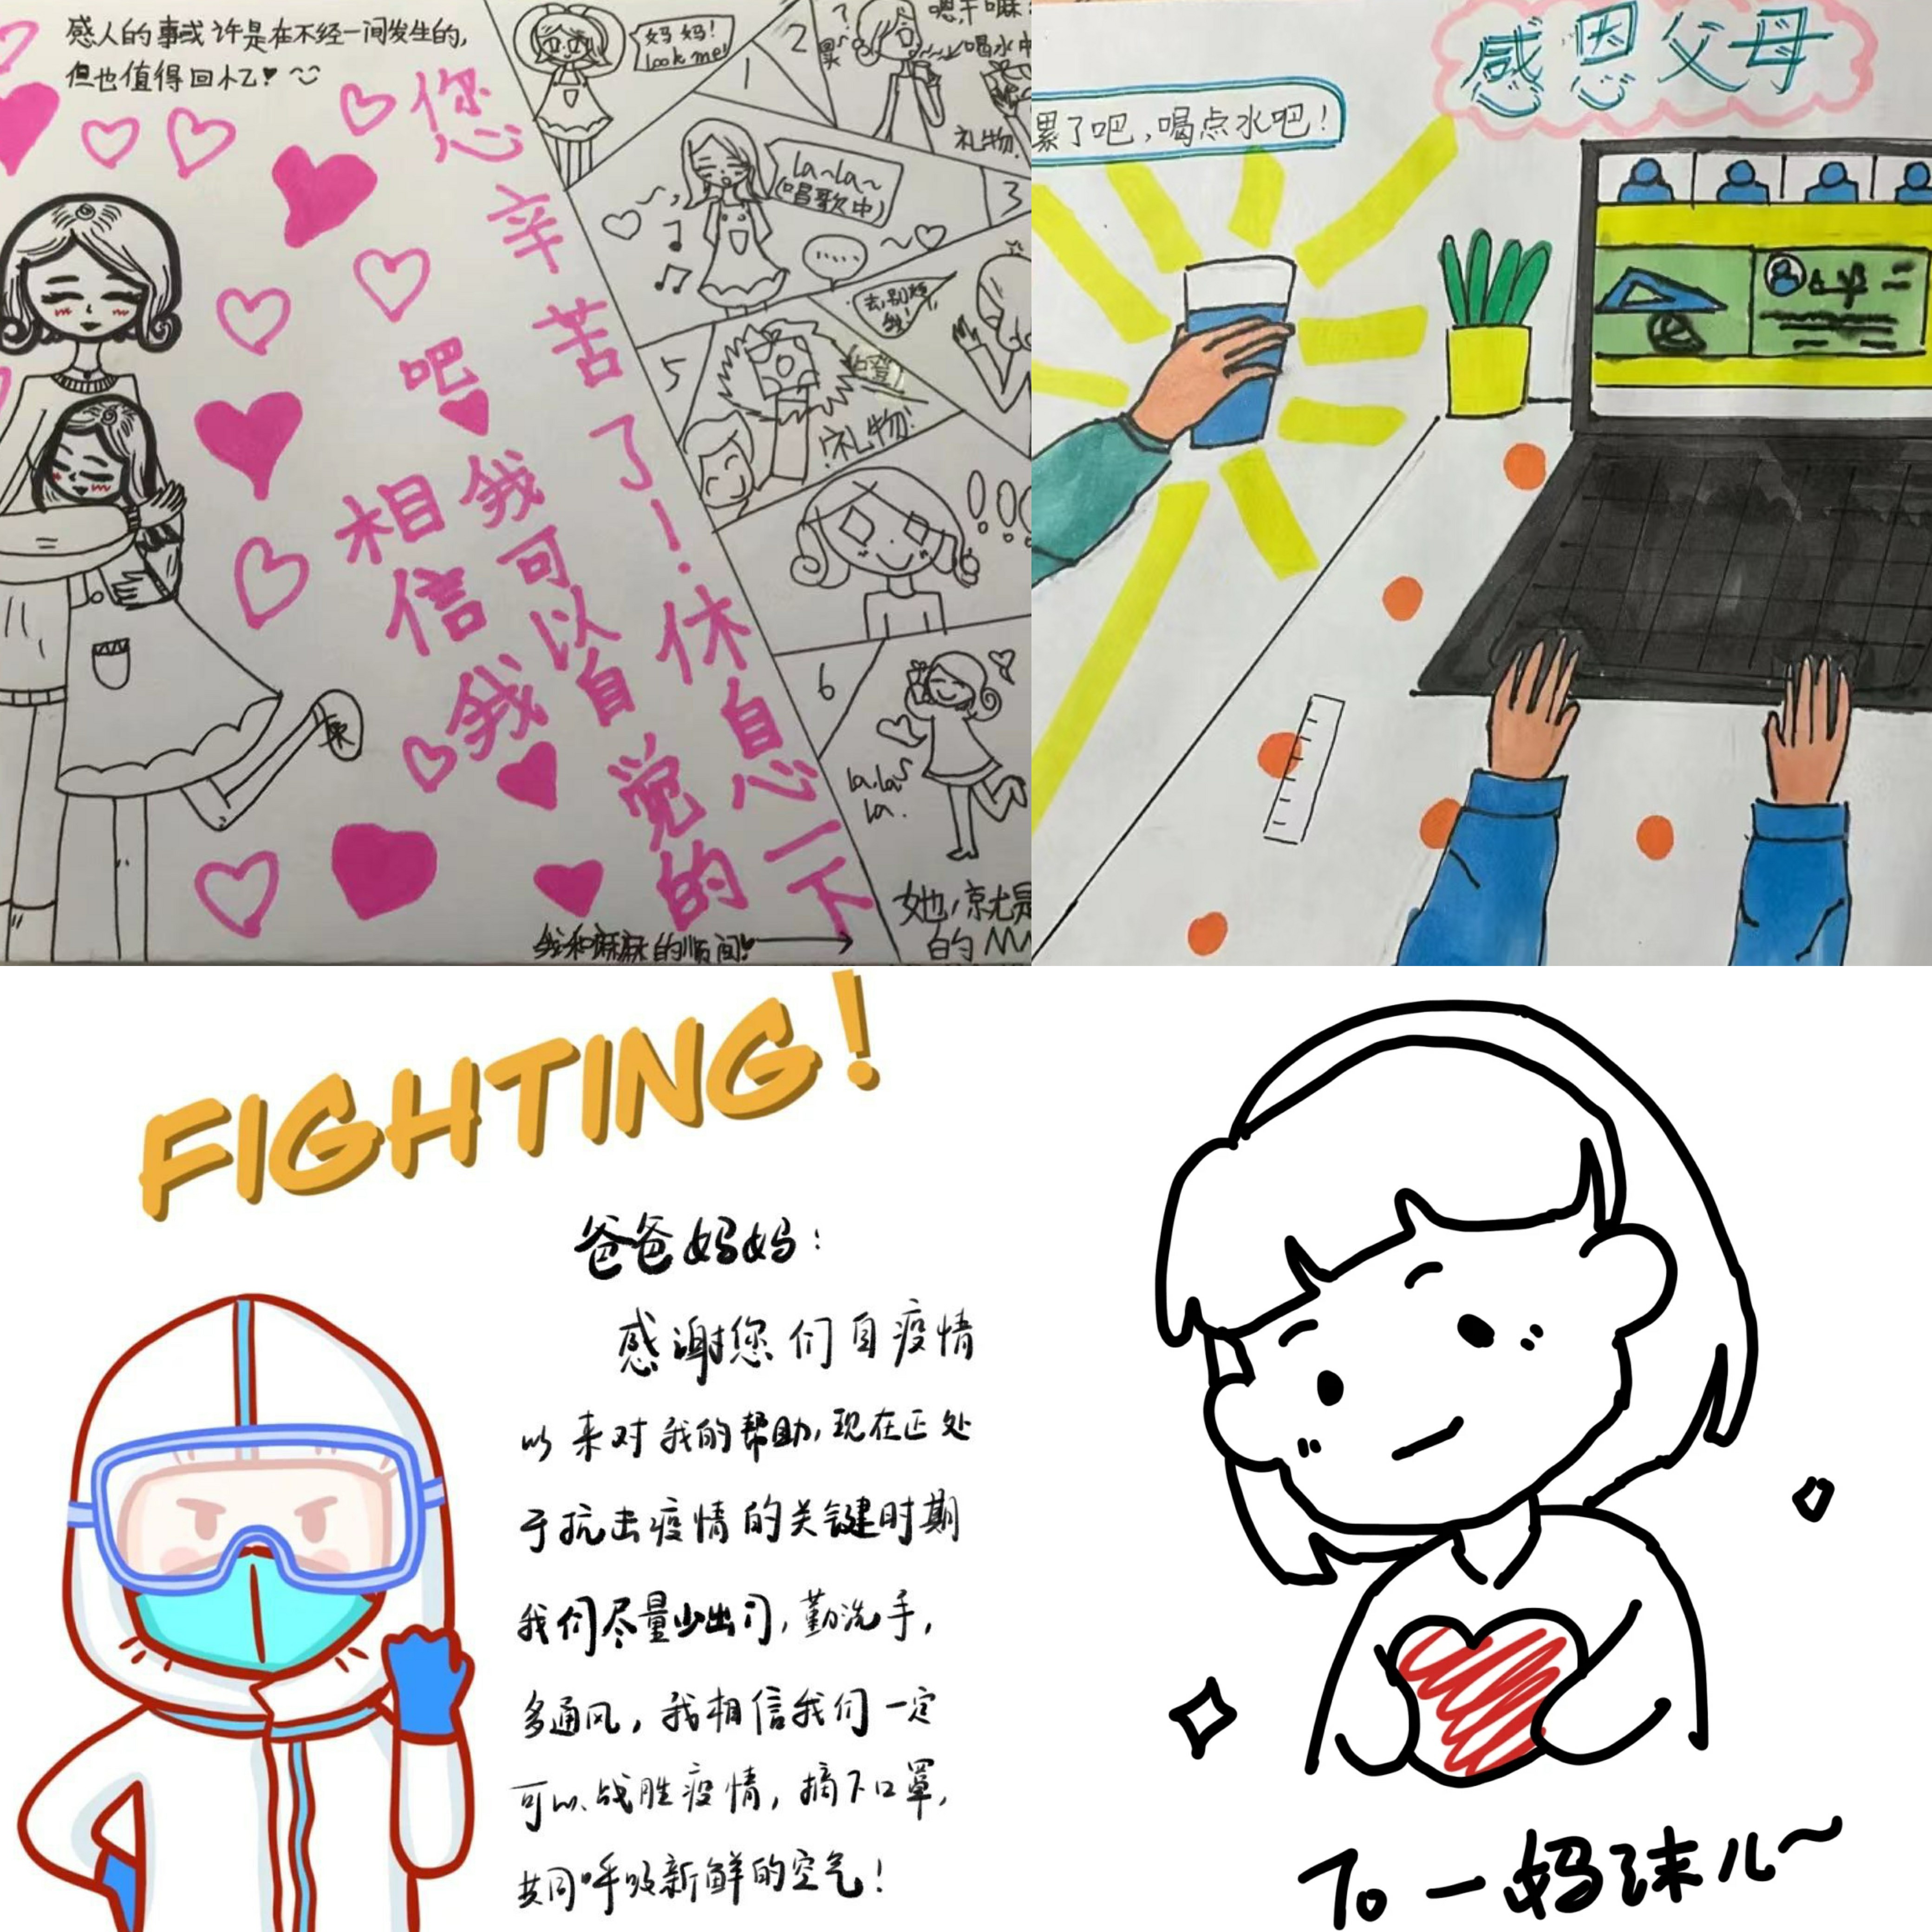 感人的事或许是在不经一间发生的,
但也值得回忆 
您辛苦了!休息一下
吧
我可以自觉的
相信我
我和麻麻的瞬间
妈妈!
look me!
1
2
?
累
喝水中
礼物.
la~la~
(唱歌中)
3
......
去,别烦
我!
5
噔
礼物!
6
la.la~
la.
她,就是
的
感恩父母
累了吧,喝点水吧!
FIGHTING!
爸爸妈妈:
感谢您们自疫情
以来对我的帮助,现在正处
于抗击疫情的关键时期
我们尽量少出门,勤洗手,
多通风,我相信我们一定
可以战胜疫情,摘下口罩,
共同呼吸新鲜的空气!
To 一妈沫儿~